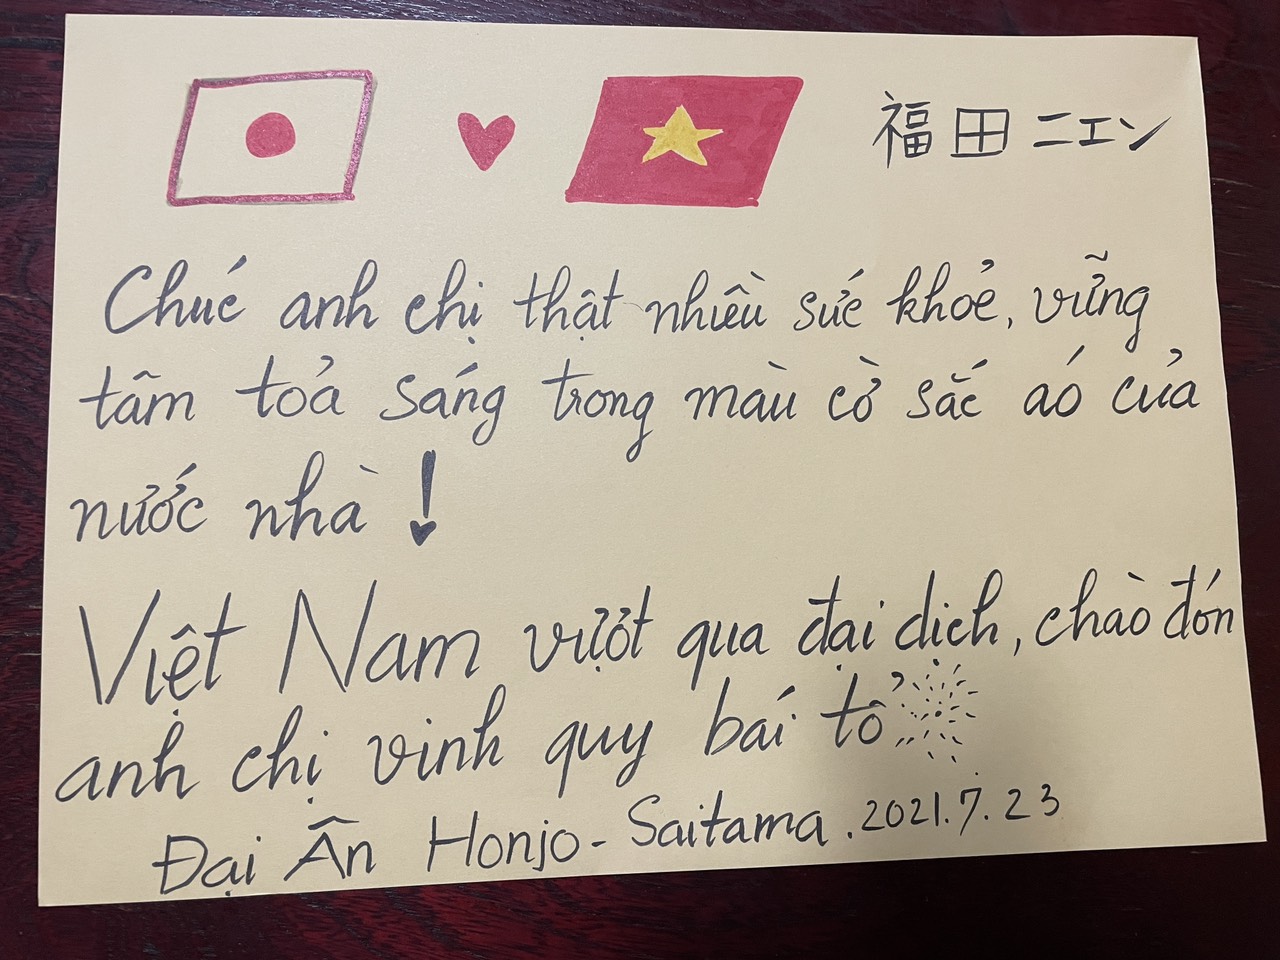 福田ニエン
Chúc anh chị thật nhiều sức khỏe, vững
tâm toả sáng trong màu cờ sắc áo của
nước nhà!
Việt Nam vượt qua đại dich, chào đón
anh chị vinh quy bái tổ
Đại Ân Honjo - Saitama. 2021.7.23